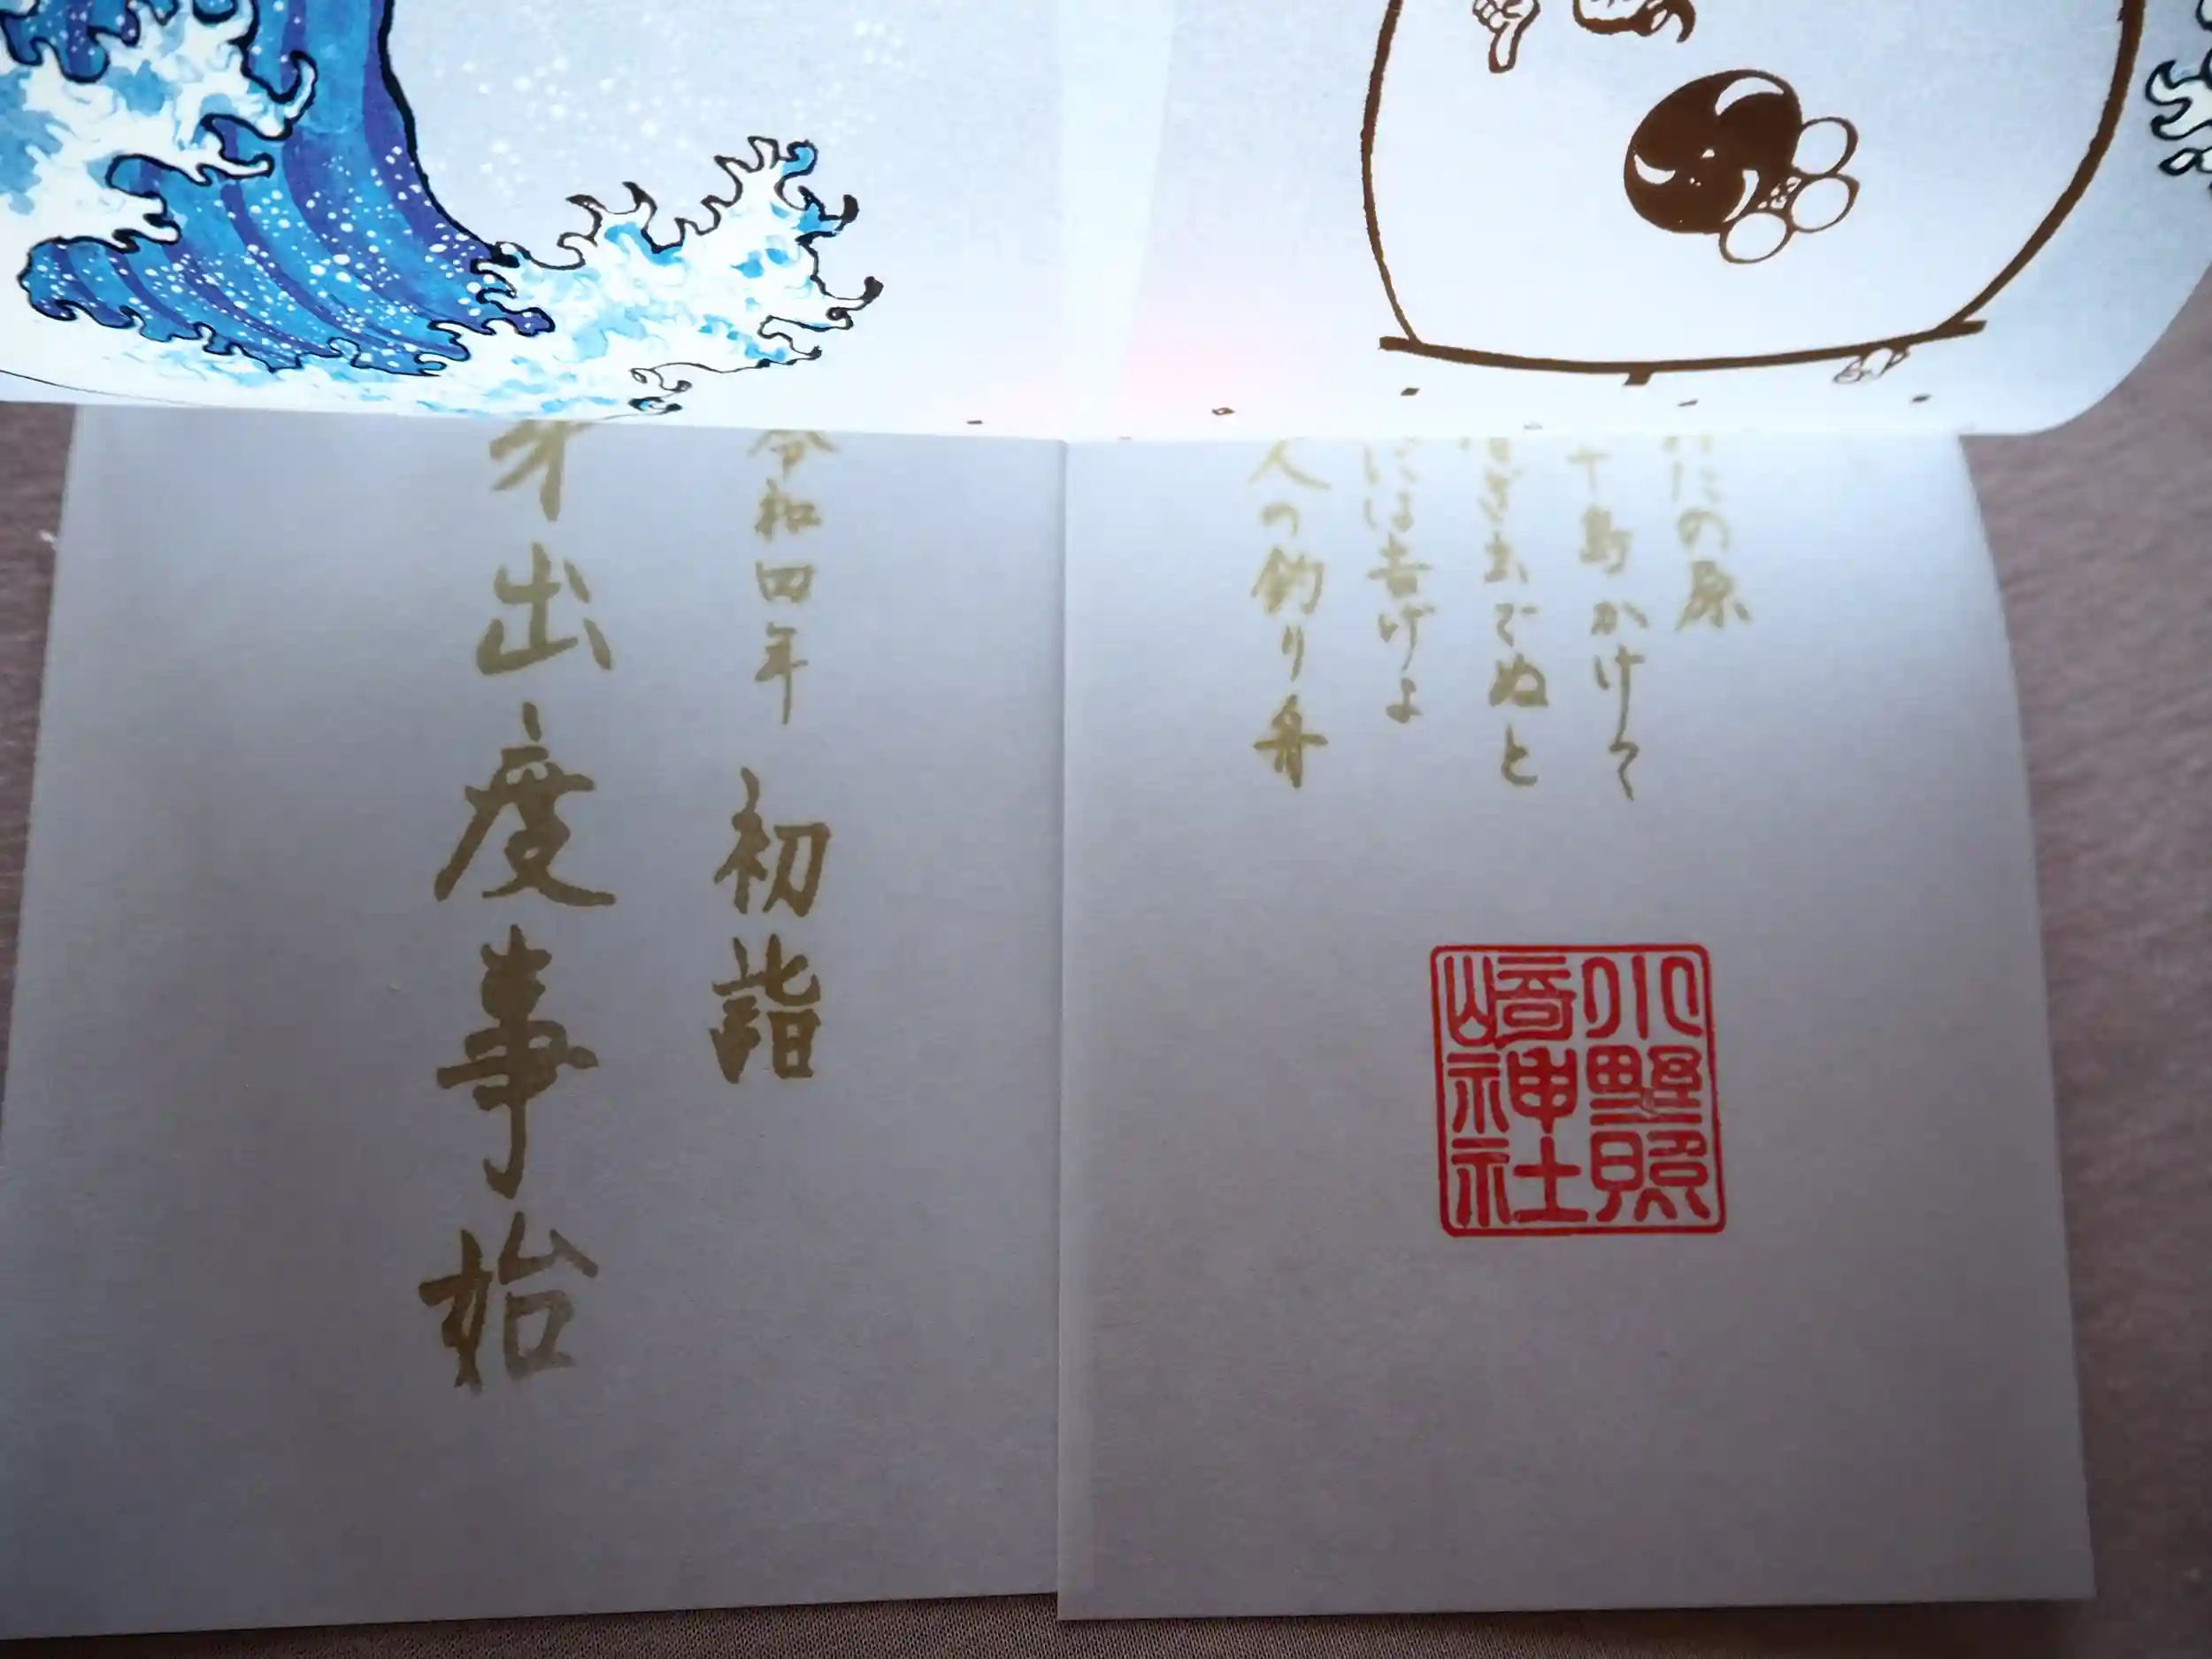 たの原
十島かけて
ぎ出でぬと
には告げよ
人の釣り舟
小野照
崎神社
令和四年 初詣
出度事始